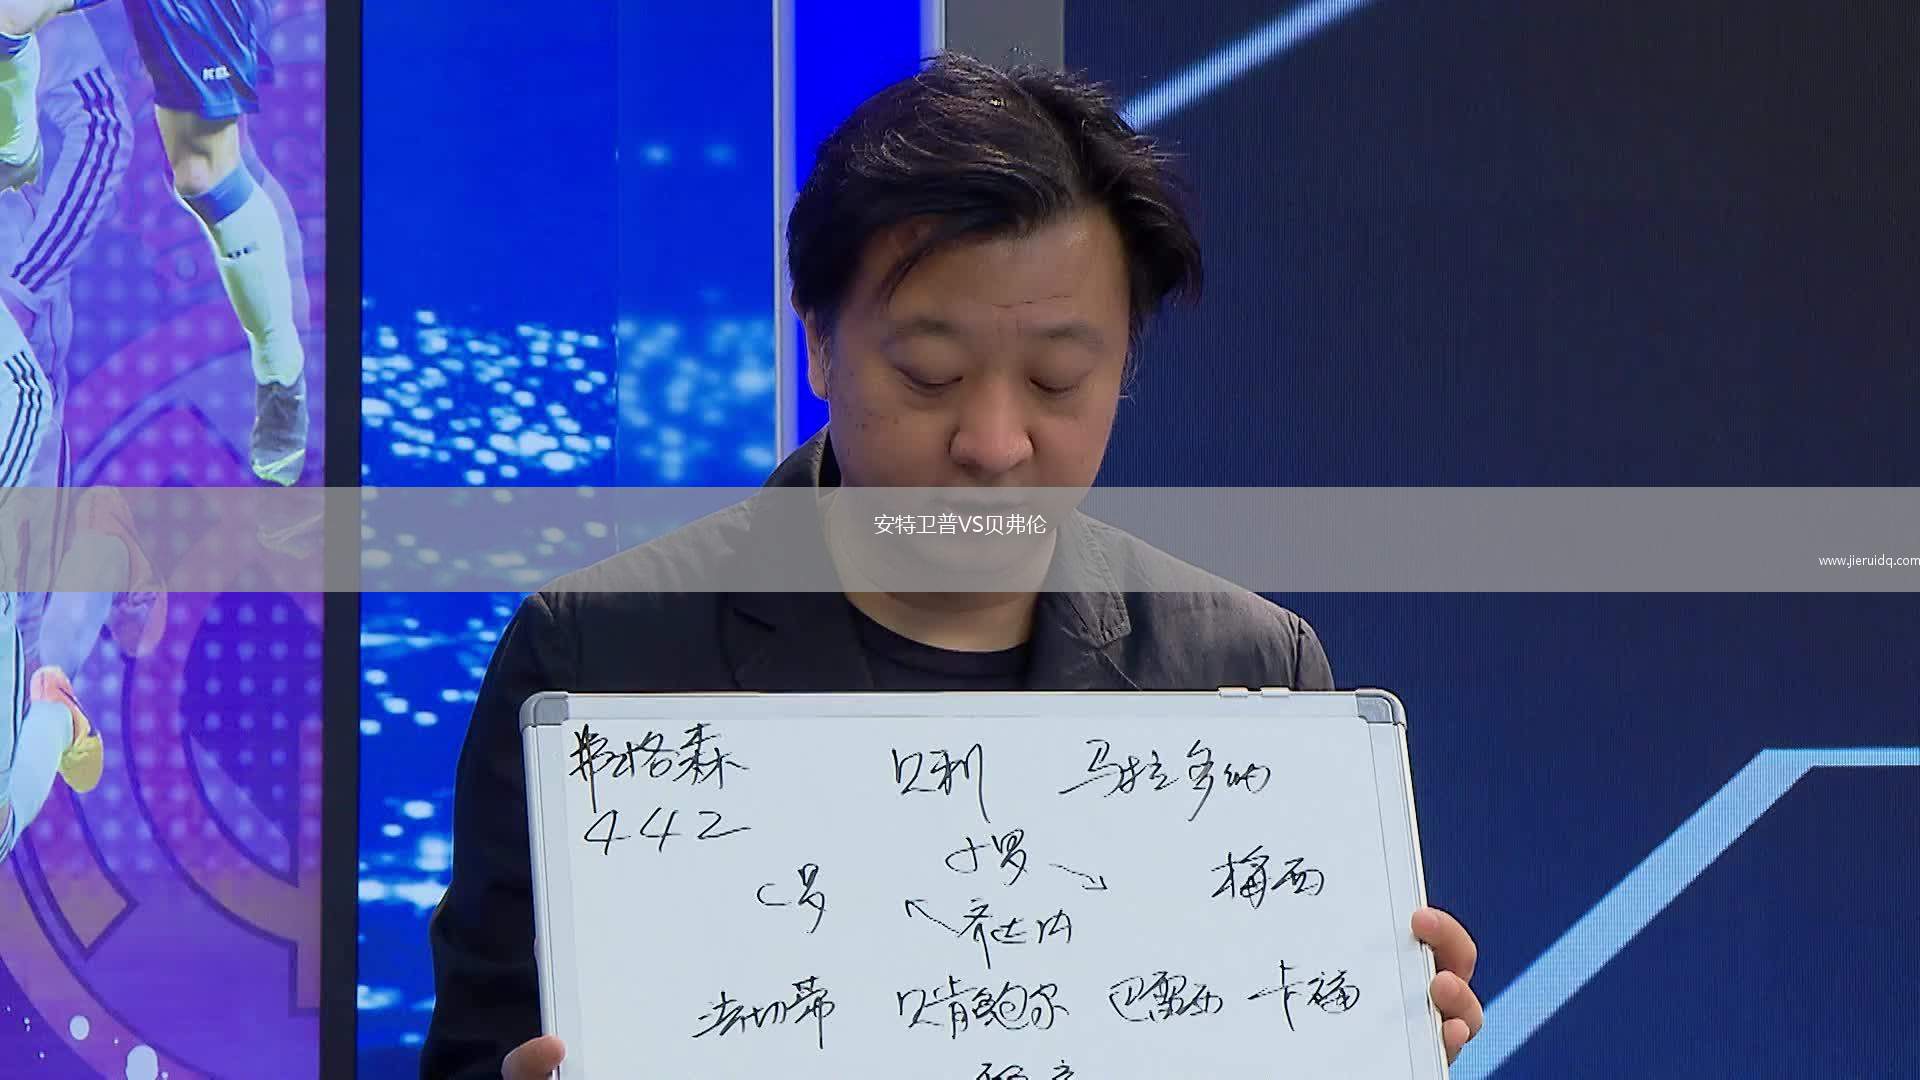 安特卫普VS贝弗伦
www.jieruidq.com
弗格森 贝利 马拉多纳
442
小罗
C罗 梅西
齐达内
法切蒂 贝肯鲍尔 巴雷西 卡福